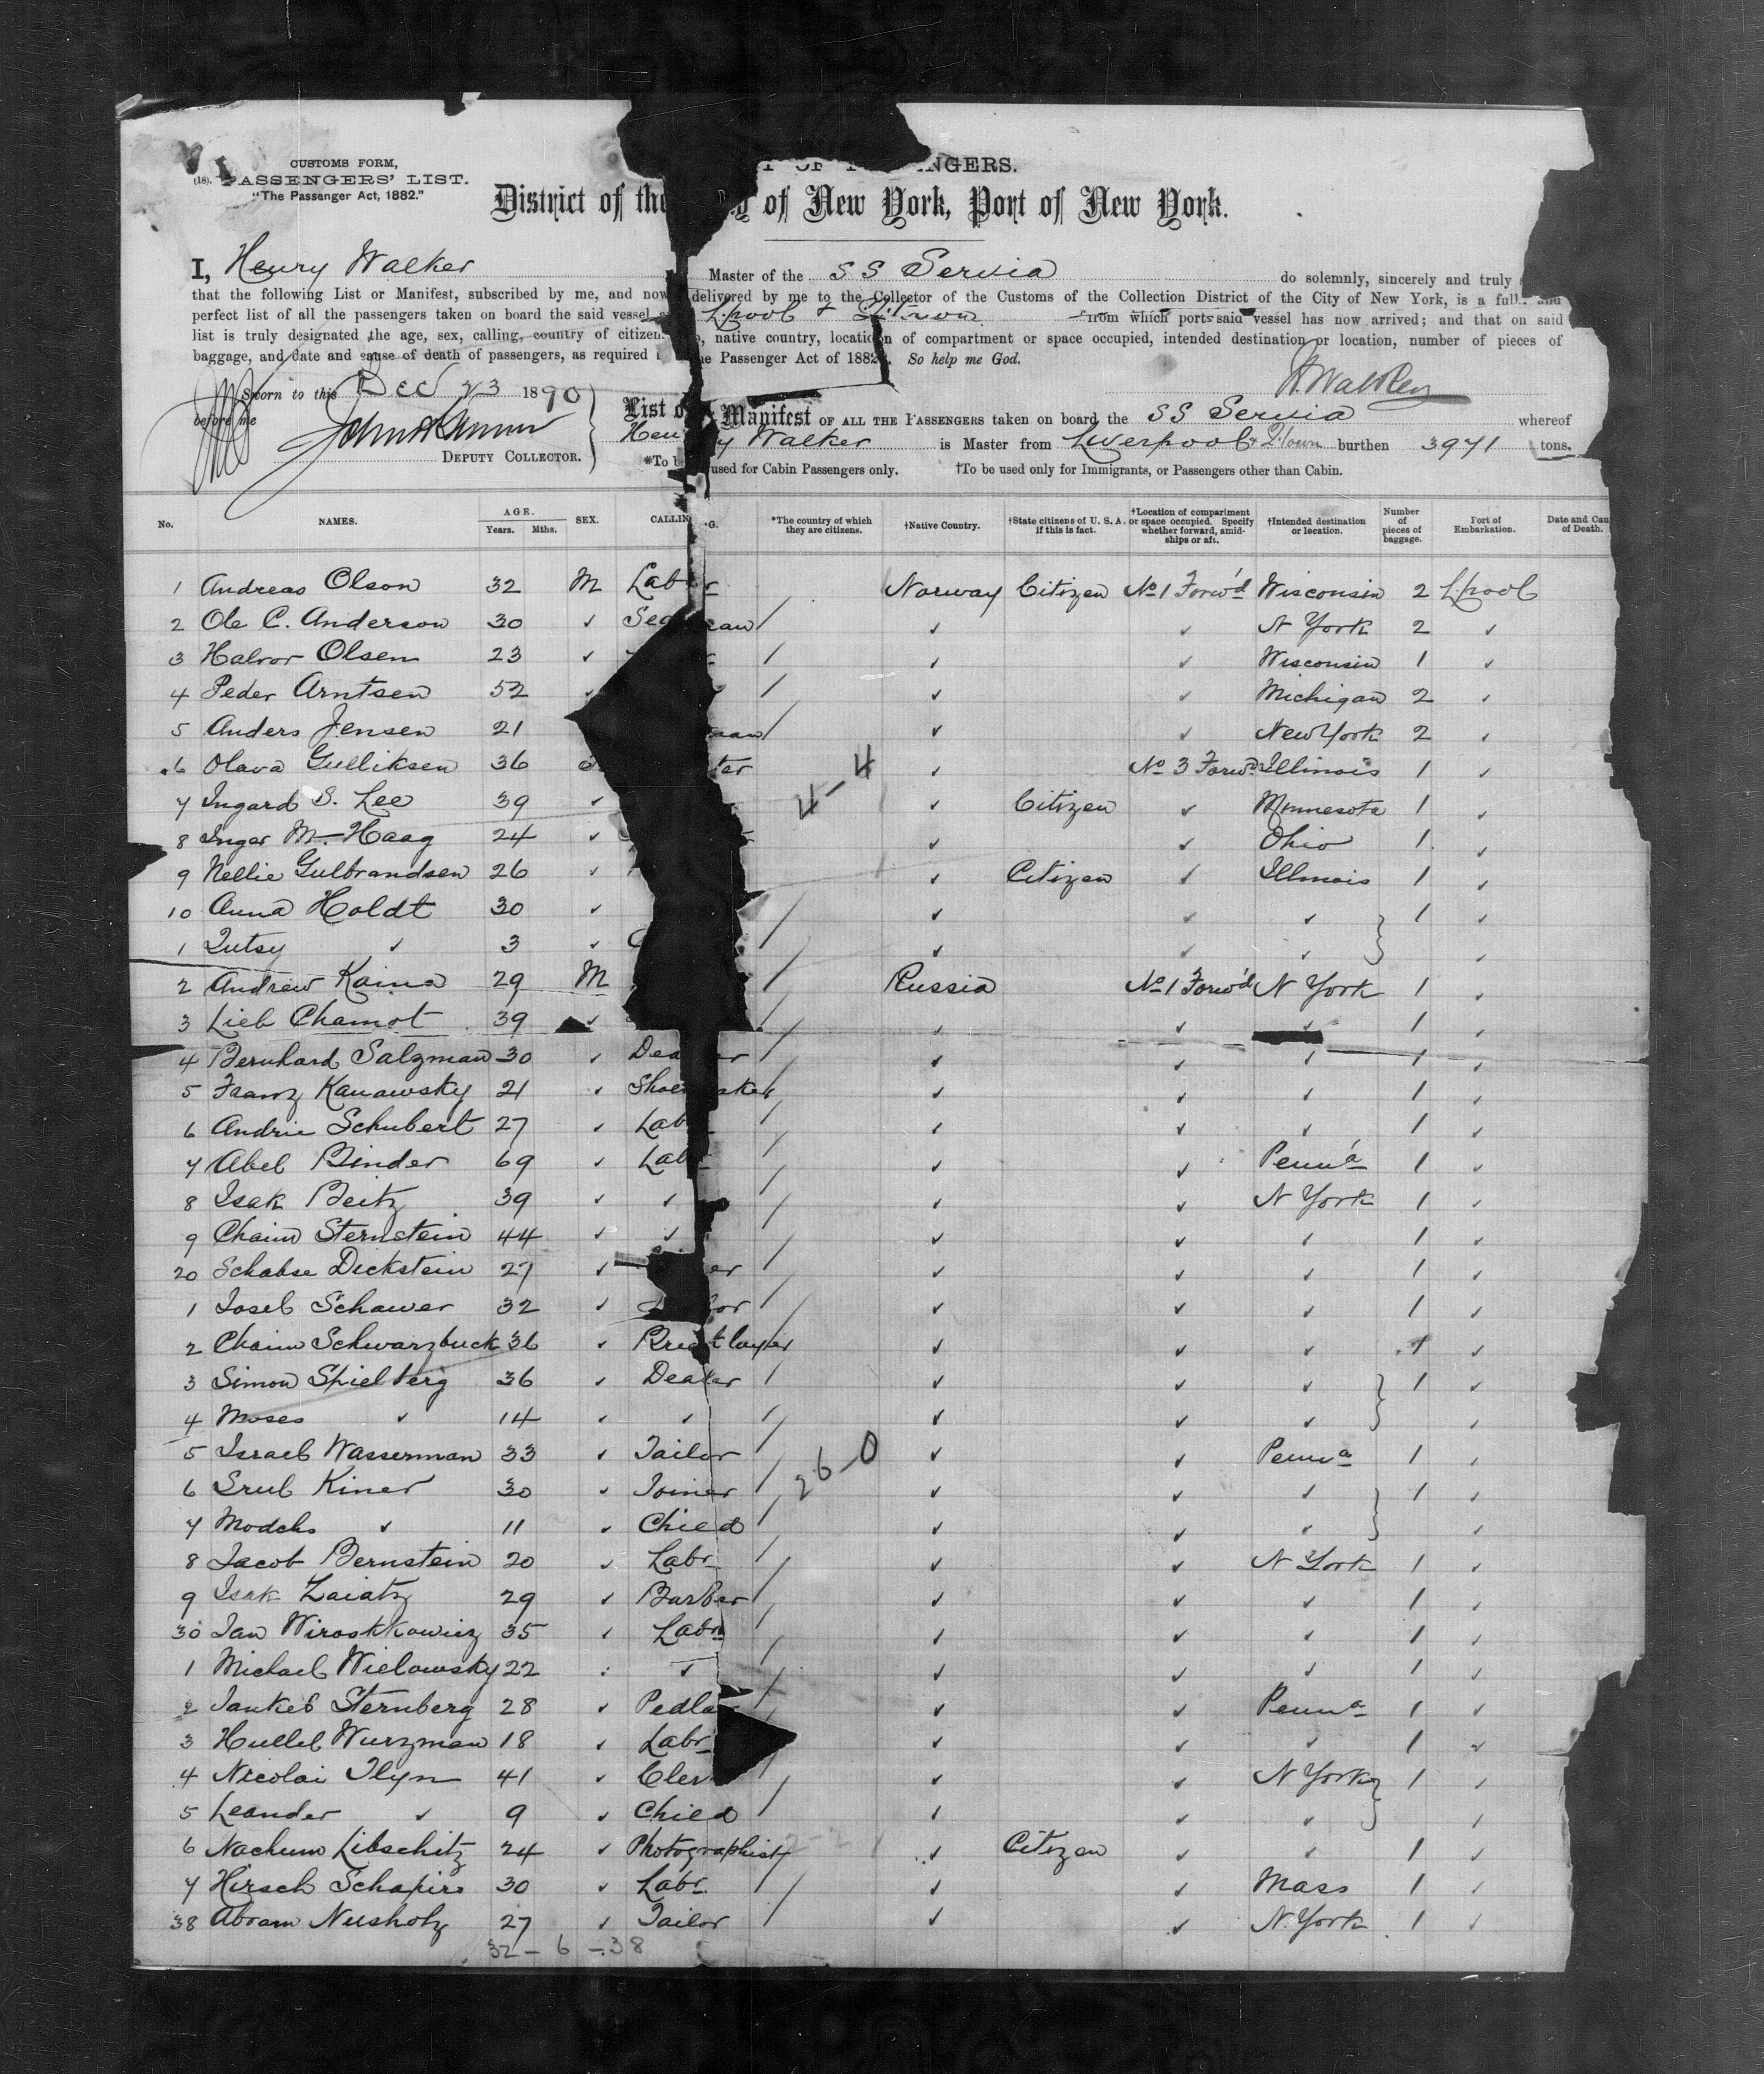 CUSTOMS FORM,
(18). PASSENGERS' LIST.
"The Passenger Act, 1882."
NGERS.
District of the of New York, Port of New York.
I, Henry Walker Master of the SS Servia do solemnly, sincerely and truly
that the following List or Manifest, subscribed by me, and now delivered by me to the Collector of the Customs of the Collection District of the City of New York, is a full and
perfect list of all the passengers taken on board the said vessel L.pool & Q.town from which ports said vessel has now arrived; and that on said
list is truly designated the age, sex, calling, country of citizen , native country, location of compartment or space occupied, intended destination or location, number of pieces of
baggage, and date and cause of death of passengers, as required the Passenger Act of 1882. So help me God.
H. Walker
Sworn to this Dec 23 1890
before me
DEPUTY COLLECTOR.
List of Manifest OF ALL THE PASSENGERS taken on board the SS Servia whereof
Henry Walker is Master from Liverpool & Q.town burthen 3971 tons.
*To be used for Cabin Passengers only. †To be used only for Immigrants, or Passengers other than Cabin.
No. NAMES. AGE. Years. Mths. SEX. CALLING. *The country of which they are citizens. †Native Country. †State citizens of U. S. A. if this is fact. †Location of compartment or space occupied. Specify whether forward, amidships or aft. †Intended destination or location. Number of pieces of baggage. Port of Embarkation. Date and Cau of Death.
1 Andreas Olson 32 M Labr Norway Citizen No 1 Forw'd Wisconsin 2 L.pool
2 Ole C. Anderson 30 ✓ Sea man / ✓ ✓ N York 2 ✓
3 Halvor Olsen 23 ✓ / ✓ ✓ Wisconsin 1 ✓
4 Peder Arntsen 52 ✓ / ✓ ✓ Michigan 2 ✓
5 Anders Jensen 21 man / ✓ ✓ New York 2 ✓
6 Olava Gulliksen 36 ter ✓ No 3 Forw'd Illinois 1 ✓
4-4
7 Ingard S. Lee 39 ✓ ✓ Citizen ✓ Minnesota 1 ✓
8 Inger M. Haag 24 ✓ ✓ ✓ Ohio 1 ✓
9 Nellie Gulbrandsen 26 ✓ ✓ Citizen ✓ Illinois 1 ✓
10 Anna Holdt 30 ✓ / ✓ ✓ ✓ 1 ✓
1 Tutsy ✓ 3 ✓ / ✓ ✓ ✓ ✓
2 Andrew Kaina 29 M / Russia No 1 Forw'd N York 1 ✓
3 Lieb Chamot 39 ✓ / ✓ ✓ ✓ 1 ✓
4 Bernhard Salzman 30 ✓ Dealer / ✓ ✓ ✓ 1 ✓
5 Franz Kanawsky 21 ✓ Shoemaker / ✓ ✓ ✓ 1 ✓
6 Andrie Schubert 27 ✓ Labr / ✓ ✓ ✓ 1 ✓
7 Abel Binder 69 ✓ Labr / ✓ ✓ Penn'a 1 ✓
8 Isak Beitz 39 ✓ ✓ / ✓ ✓ N York 1 ✓
9 Chaim Sternstein 44 ✓ ✓ / ✓ ✓ ✓ 1 ✓
20 Schabse Dickstein 27 ✓ er / ✓ ✓ ✓ 1 ✓
1 Josel Schawer 32 ✓ or / ✓ ✓ ✓ 1 ✓
2 Chaim Schwarzbuck 36 ✓ Bricklayer ✓ ✓ ✓ 1 ✓
3 Simon Spielberg 36 ✓ Dealer / ✓ ✓ ✓ 1 ✓
4 Moses ✓ 14 ✓ ✓ / ✓ ✓ ✓ ✓
5 Israel Wasserman 33 ✓ Tailor / ✓ ✓ Penna 1 ✓
26-0
6 Srul Kiner 30 ✓ Joiner / ✓ ✓ ✓ 1 ✓
7 Modchs ✓ 11 ✓ Child / ✓ ✓ ✓ ✓
8 Jacob Bernstein 20 ✓ Labr / ✓ ✓ N York 1 ✓
9 Isak Zaiatz 29 ✓ Barber / ✓ ✓ ✓ 1 ✓
30 Jan Wiroskkowicz 35 ✓ Labr / ✓ ✓ ✓ 1 ✓
1 Michael Wielowsky 22 ✓ / ✓ ✓ ✓ 1 ✓
2 Jankel Sternberg 28 ✓ Pedlar / ✓ ✓ Penna 1 ✓
3 Hullel Wurzman 18 ✓ Labr ✓ ✓ ✓ 1 ✓
4 Nicolai Ilyn 41 ✓ Cler / ✓ ✓ N York 1 ✓
5 Leander ✓ 9 ✓ Child / ✓ ✓ ✓ ✓
6 Nachum Libschitz 24 ✓ Photographist 2-2 ✓ Citizen ✓ ✓ 1 ✓
7 Hirsch Schapiro 30 ✓ Labr / ✓ ✓ Mass 1 ✓
38 Abram Nusholz 27 ✓ Tailor / ✓ ✓ N. York 1 ✓
32 - 6 - 38